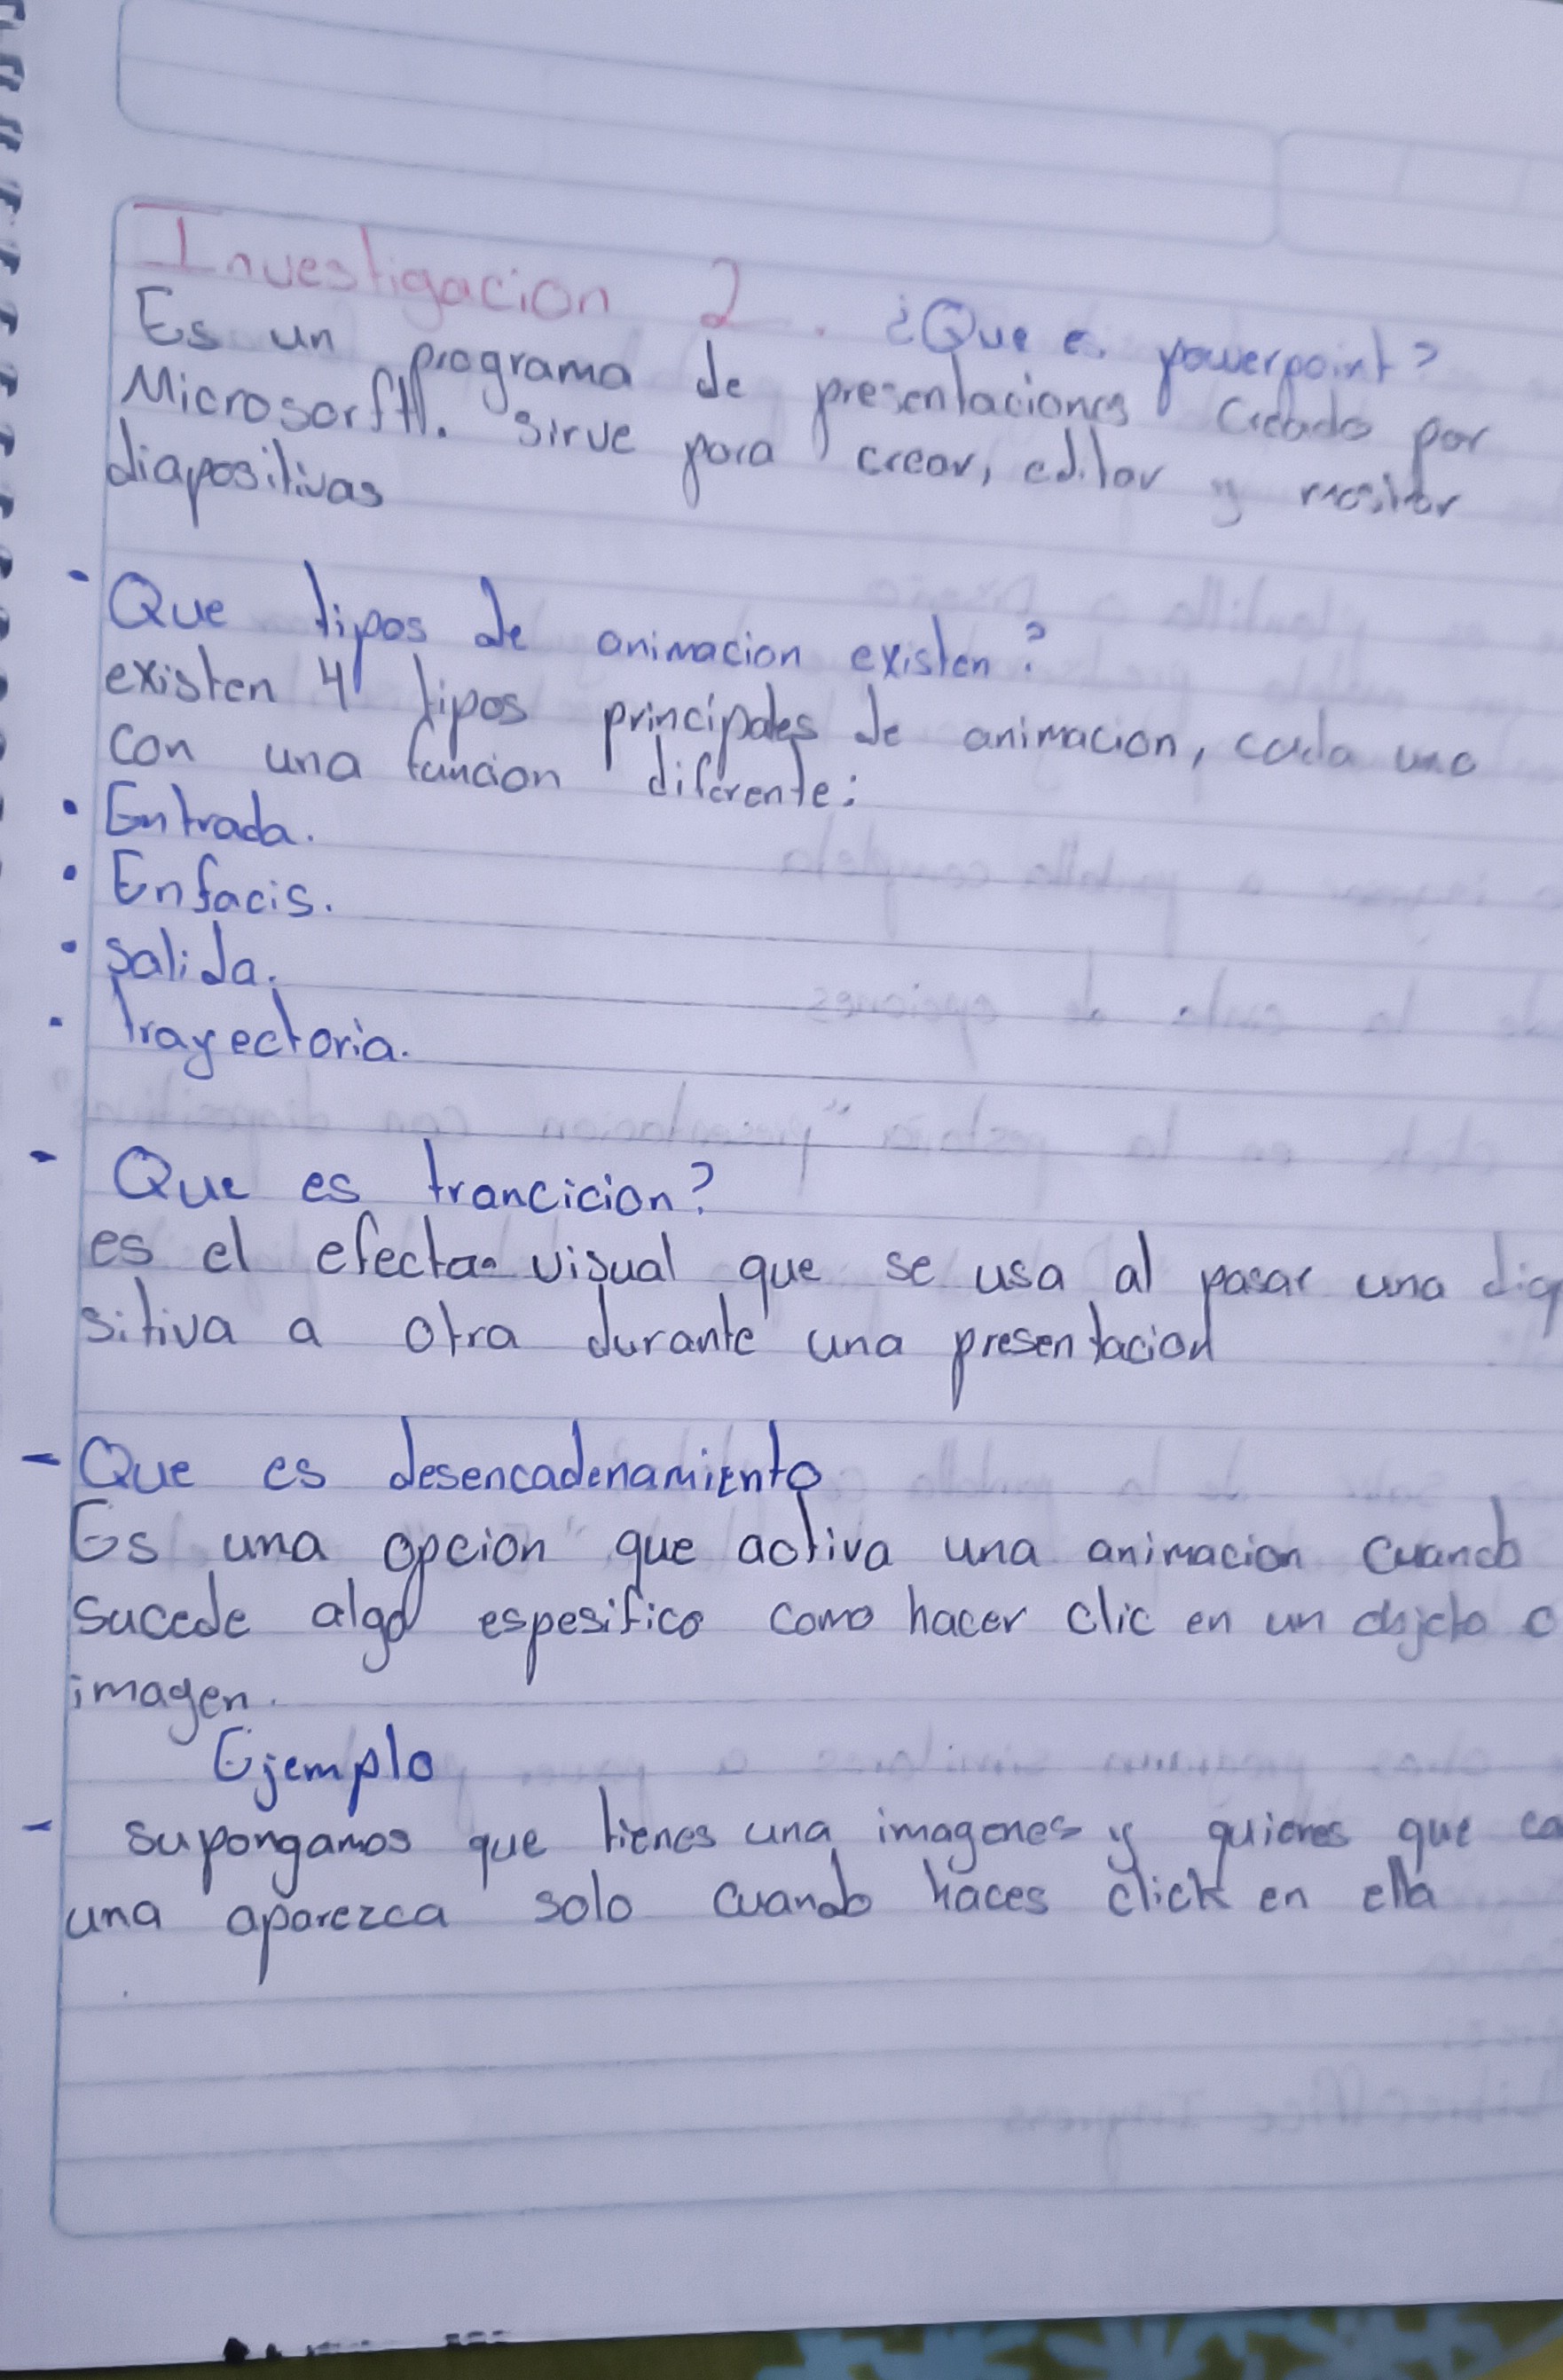 Investigacion 2. ¿Que es powerpoint?
Es un programa de presentaciones creado por
Microsorft. sirve para crear, editar y mostrar
diapositivas
- Que tipos de animacion existen?
existen 4 tipos principales de animacion, cada una
con una funcion diferente:
• Entrada.
• Enfacis.
• salida.
• Trayectoria.
- Que es trancicion?
es el efecto visual que se usa al pasar una diap
sitiva a otra durante una presentacion
- Que es desencadenamiento
Es una opcion que activa una animacion cuando
sucede algo espesifico como hacer clic en un objeto o
imagen.
Ejemplo
- supongamos que tienes una imagenes y quieres que ca
una aparezca solo cuando haces click en ella